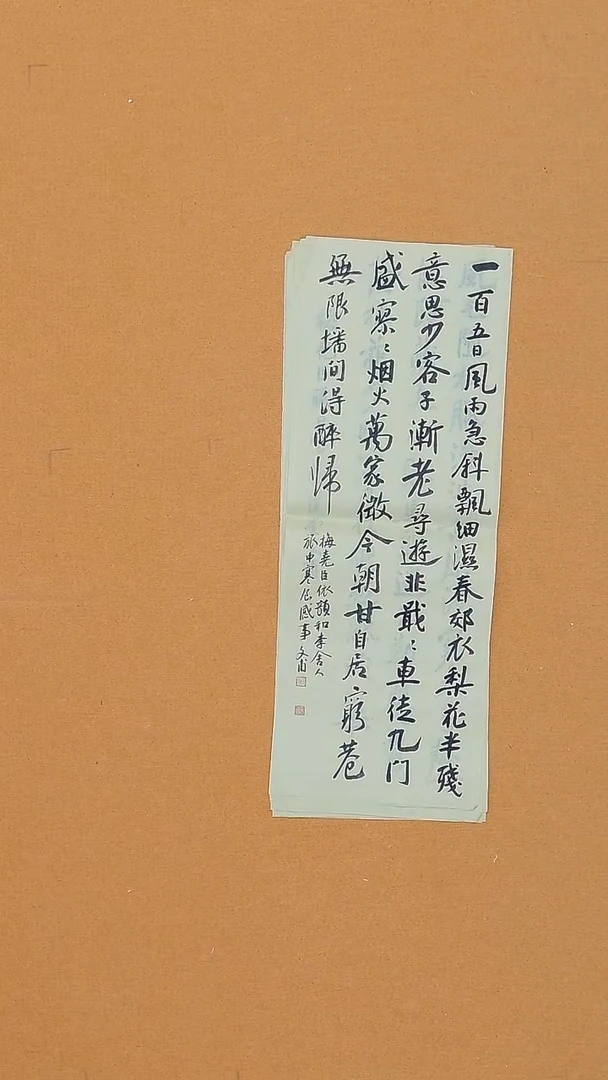 一百五日風雨急斜飄細濕春郊衣梨花半殘
意思少客子漸老尋遊非戢〻車徒九门
盛寥〻烟火萬家微今朝甘自居窮巷
無限墦间得醉歸
梅堯臣依韻和李舍人
旅中寒食感事 文甫